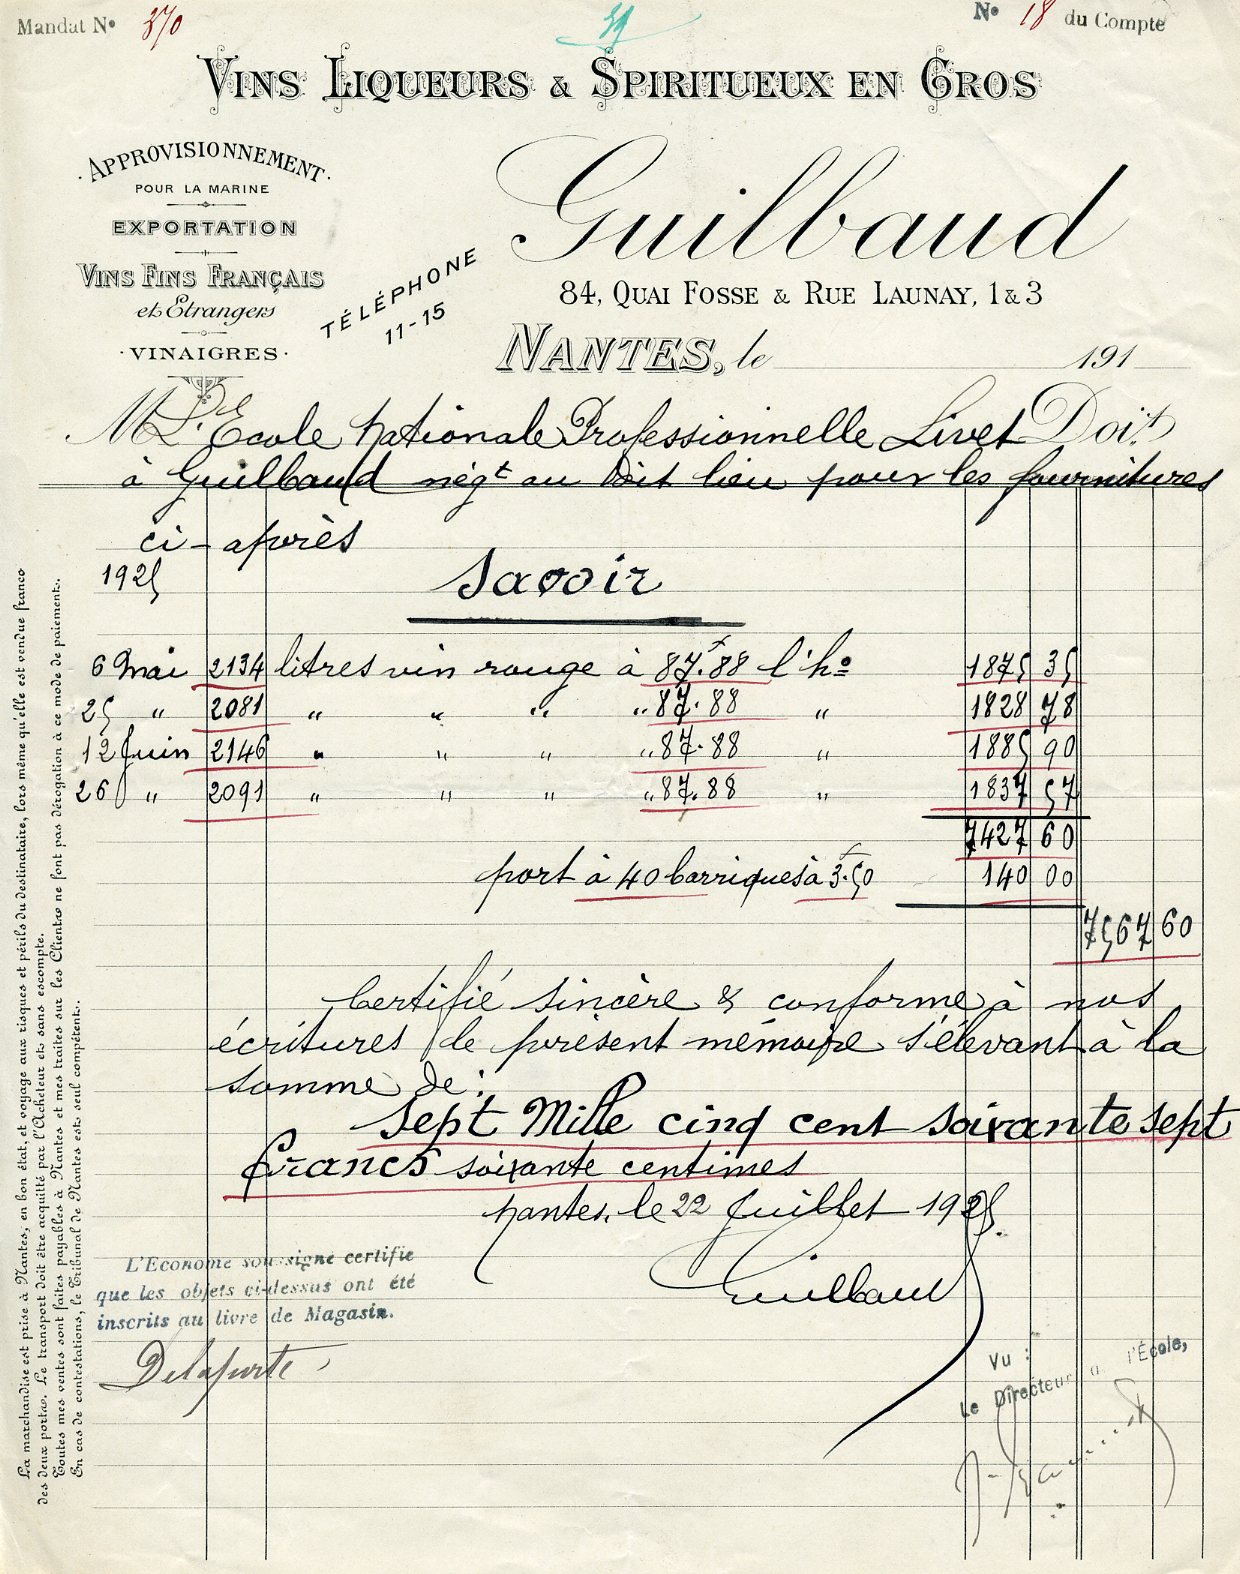 Mandat N° 370
39
N° 18 du Compte
VINS LIQUEURS & SPIRITUEUX EN GROS
·APPROVISIONNEMENT·
POUR LA MARINE
EXPORTATION
VINS FINS FRANÇAIS
et Etrangers
·VINAIGRES·
TÉLÉPHONE
11-15
Guilbaud
84, QUAI FOSSE & RUE LAUNAY, 1 & 3
NANTES, le 191
M L'Ecole Nationale Professionnelle Livet Doit
à Guilbaud négt au dit lieu pour les fournitures
ci-après
1925
Savoir
6 Mai 2134 litres vin rouge à 87.88 l'ho 1875 35
25 " 2081 " " " " 87.88 " 1828 78
12 Juin 2146 " " " " 87.88 " 1885 90
26 " 2091 " " " " 87.88 " 1837 57
7427 60
port à 40 barriques à 3.50 140 00
7567 60
Certifié sincère & conforme à nos
écritures le présent mémoire s'élevant à la
somme de :
Sept Mille cinq cent soixante sept
francs soixante centimes
Nantes, le 22 Juillet 1925.
Guilbaud
L'Econome soussigné certifie
que les objets ci-dessus ont été
inscrits au livre de Magasin.
Delaporte
Vu :
Le Directeur l'École,
La marchandise est prise à Nantes, en bon état, et voyage aux risques et périls du destinataire, lors même qu'elle est vendue franco
des deux ports. Le transport doit être acquitté par l'Acheteur et sans escompte.
Toutes mes ventes sont faites payables à Nantes et mes traites sur les Clients ne font pas dérogation à ce mode de paiement.
En cas de contestations, le Tribunal de Nantes est seul compétent.